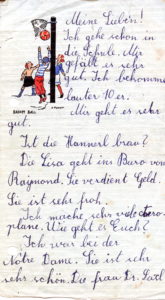 Meine Lieben!
Ich gehe schon in
die Schule. Mir
gefällt es sehr
gut. Ich bekomme
lauter 10er.
Mir geht es sehr
gut.
Ist die Hannerl brav?
Die Lisa geht ins Buro von
Raimond. Sie verdient Geld.
Sie ist sehr froh.
Ich mache sehr viele Aero-
plane. Wie geht es Euch?
Ich war bei der
Notre Dame. Sie ist sehr
sehr schön. Die frau Dr.